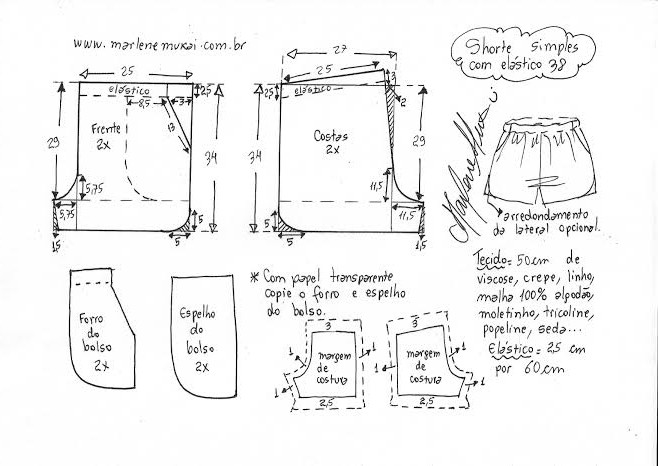 www.marlenemukai.com.br
25
elástico
8,5
3
2,5
13
Frente
2x
29
34
5,75
5,75
1,5
5
5
27
25
3
2,5
elástico
2
Costas
2x
34
29
11,5
11,5
5
5
1,5
Shorte simples
com elástico 38
Marlene Mukai
arredondamento
da lateral opcional.
Tecido= 50cm de
viscose, crepe, linho,
malha 100% algodão,
moletinho, tricoline,
popeline, seda...
Elástico= 2,5 cm
por 60cm
Forro
do
bolso
2x
Espelho
do
bolso
2x
* Com papel transparente
copie o forro e espelho
do bolso.
3
1
margem
de
costura
1
1
2,5
3
1
margem
de
costura
1
1
2,5